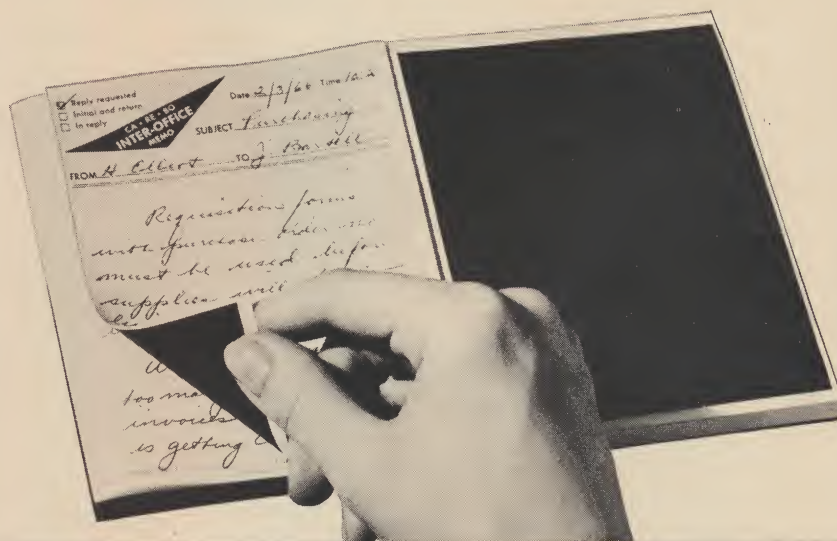 Reply requested
Initial and return
In reply
CA • RE • BO
INTER-OFFICE
MEMO
Date 2/3/66 Time 10
SUBJECT Purchasing
FROM H Elliot TO J.
Requisition forms
with purchase order no
must be used before
supplies will
be
too ma
invoices
is getting